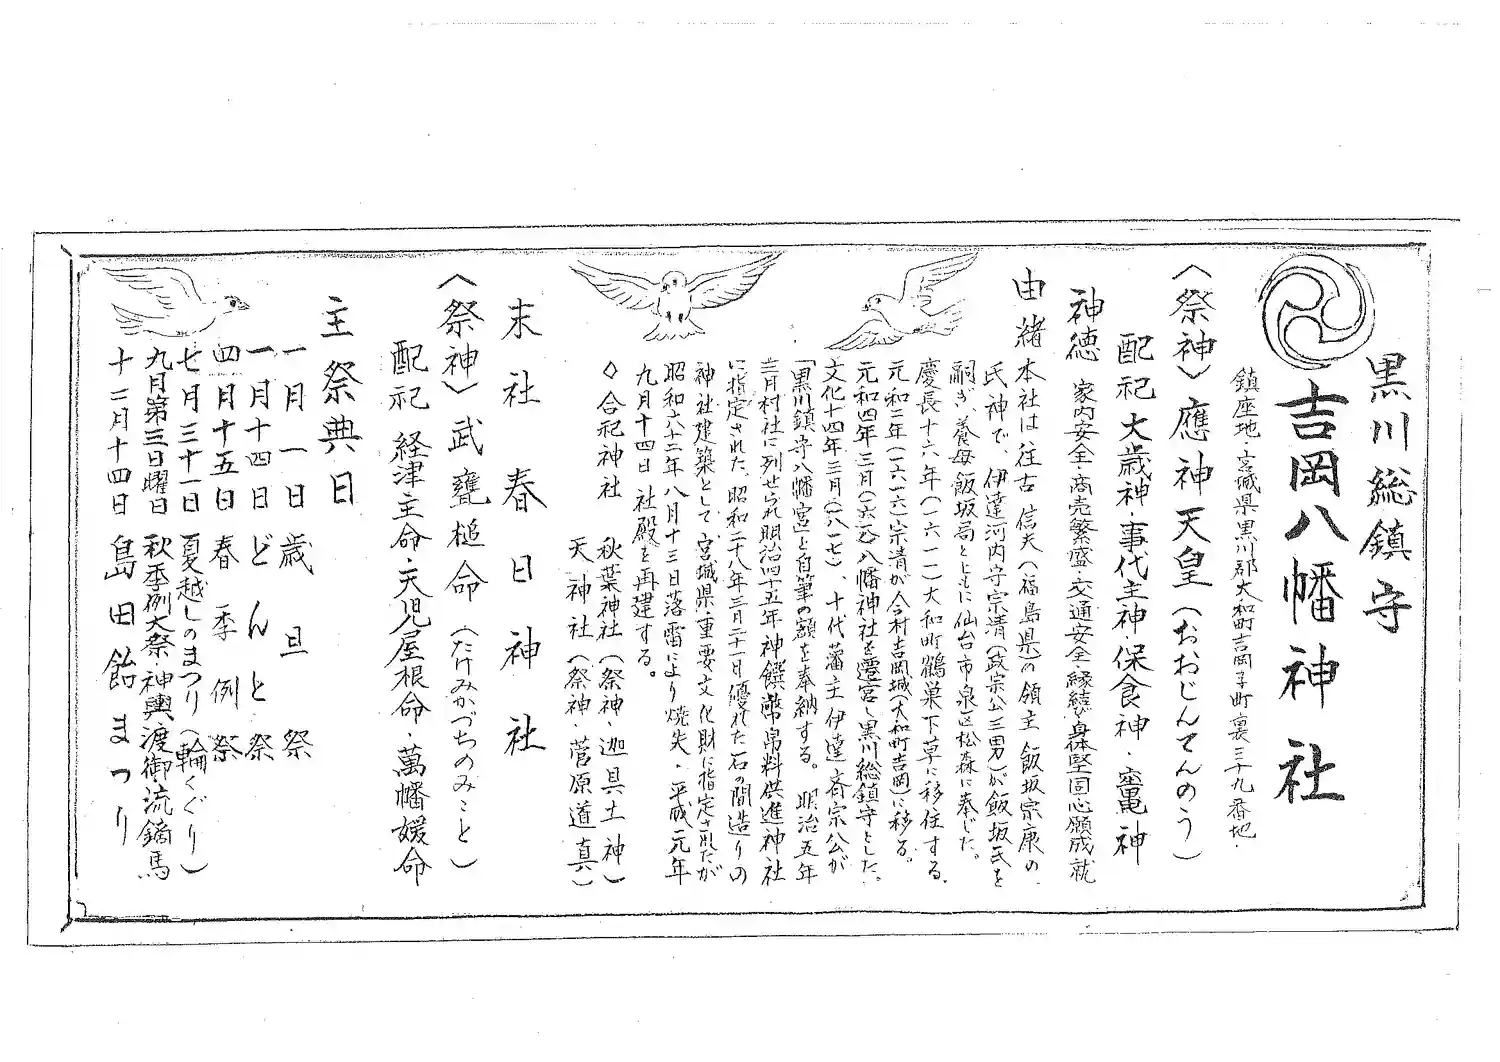 黒川総鎮守
吉岡八幡神社
鎮座地・宮城県黒川郡大和町吉岡字町裏三十九番地・
〈祭神〉應神天皇（おおじんてんのう）
配祀 大歳神・事代主神・保食神・竈神
神徳 家内安全・商売繁盛・交通安全・縁結び・身体堅固・心願成就
由緒 本社は往古 信夫（福島県）の領主 飯坂宗康の
氏神で、伊達河内守宗清（政宗公三男）が飯坂氏を
嗣ぎ、養母 飯坂局とともに仙台市泉区松森に奉じた。
慶長十六年（一六一一）大和町鶴巣下草に移住する、
元和二年（一六一六）宗清が今村吉岡城（大和町吉岡）に移る。
元和四年三月（一六一八）八幡神社を遷宮し黒川総鎮守とした。
文化十四年三月（一八一七）、十代藩主 伊達斉宗公が
「黒川鎮守八幡宮」と自筆の額を奉納する。 明治五年
三月村社に列せられ明治四十五年神饌幣帛料供進神社
に指定された、昭和二十八年三月二十一日優れた一石の間造りの
神社建築として 宮城県・重要文化財に指定されたが
昭和六十二年八月十三日落雷により焼失、平成元年
九月十四日 社殿を再建する。
◇合祀神社 秋葉神社（祭神・迦具土神）
天神社（祭神・菅原道真）
末社 春日神社
〈祭神〉武甕槌命（たけみかづちのみこと）
配祀 経津主命・天児屋根命・萬幡媛命
主祭典日
一月一日 歳旦祭
一月十四日 どんと祭
四月十五日 春季例祭
七月三十一日 夏越しのまつり（輪くぐり）
九月第三日曜日 秋季例大祭・神輿渡御・流鏑馬
十二月十四日 島田飴まつり